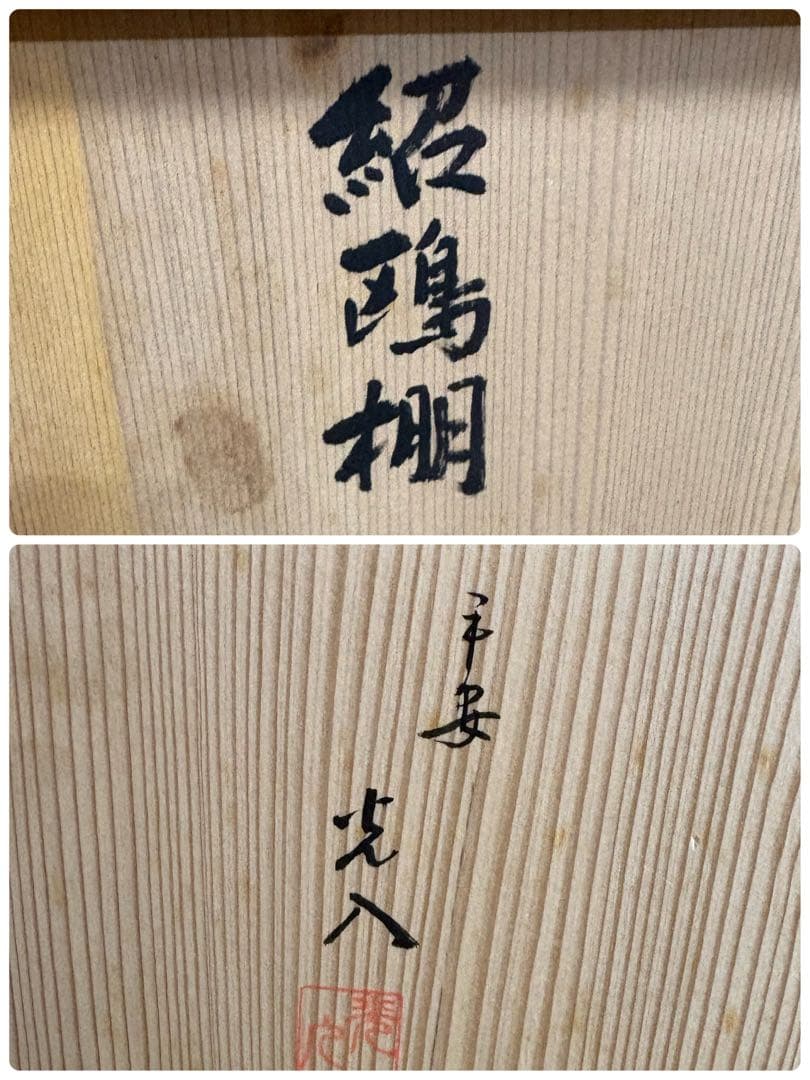 紹鴎棚
平安
光入